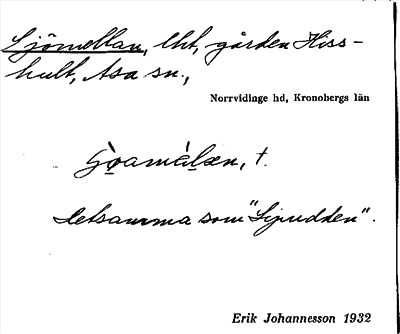 Sjömellan, lht, gården Hiss-
hult, Asa sn.,
Norrvidinge hd, Kronobergs län
f.
detsamma som "Sjöudden".
Erik Johannesson 1932